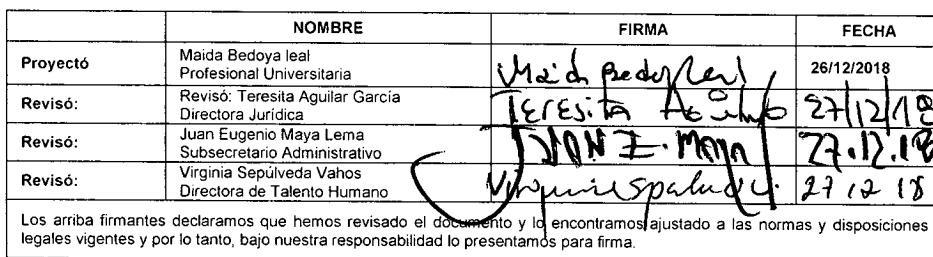 NOMBRE FIRMA FECHA
Proyectó Maida Bedoya leal
Profesional Universitaria Maida Bedoya Leal 26/12/2018
Revisó: Revisó: Teresita Aguilar García
Directora Jurídica Teresita Aguilar 27/12/18
Revisó: Juan Eugenio Maya Lema
Subsecretario Administrativo JUAN E. Maya 27.12.18
Revisó: Virginia Sepúlveda Vahos
Directora de Talento Humano 27 12 18
Los arriba firmantes declaramos que hemos revisado el documento y lo encontramos ajustado a las normas y disposiciones
legales vigentes y por lo tanto, bajo nuestra responsabilidad lo presentamos para firma.